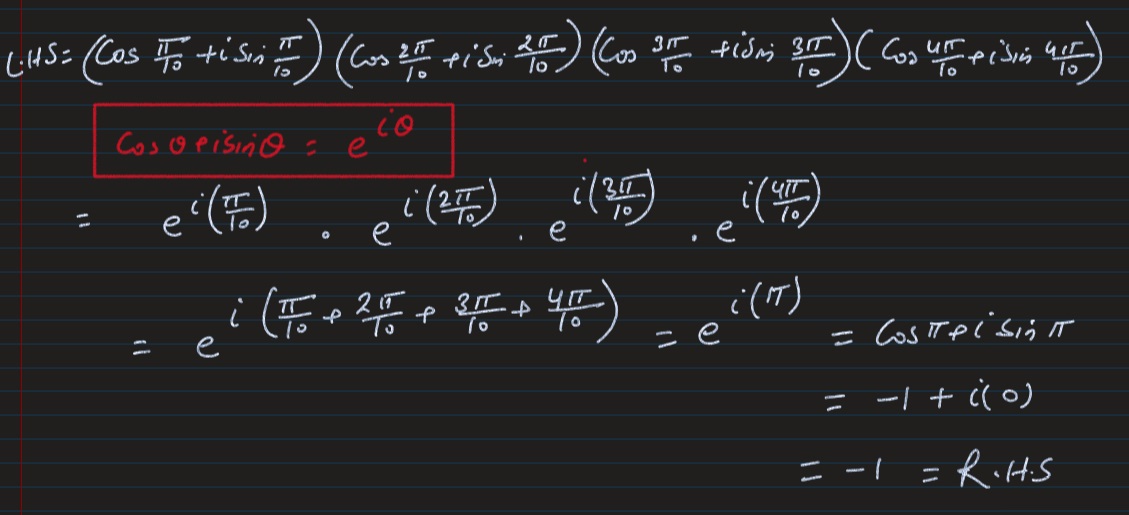 L.HS = (Cos π/10 + i Sin π/10) (Cos 2π/10 + i Sin 2π/10) (Cos 3π/10 + i Sin 3π/10) (Cos 4π/10 + i Sin 4π/10)
Cos θ + i sin θ = e^{iθ}
= e^{i(π/10)} . e^{i(2π/10)} . e^{i(3π/10)} . e^{i(4π/10)}
= e^{i(π/10 + 2π/10 + 3π/10 + 4π/10)} = e^{i(π)} = Cos π + i Sin π
= -1 + i(0)
= -1 = R.H.S